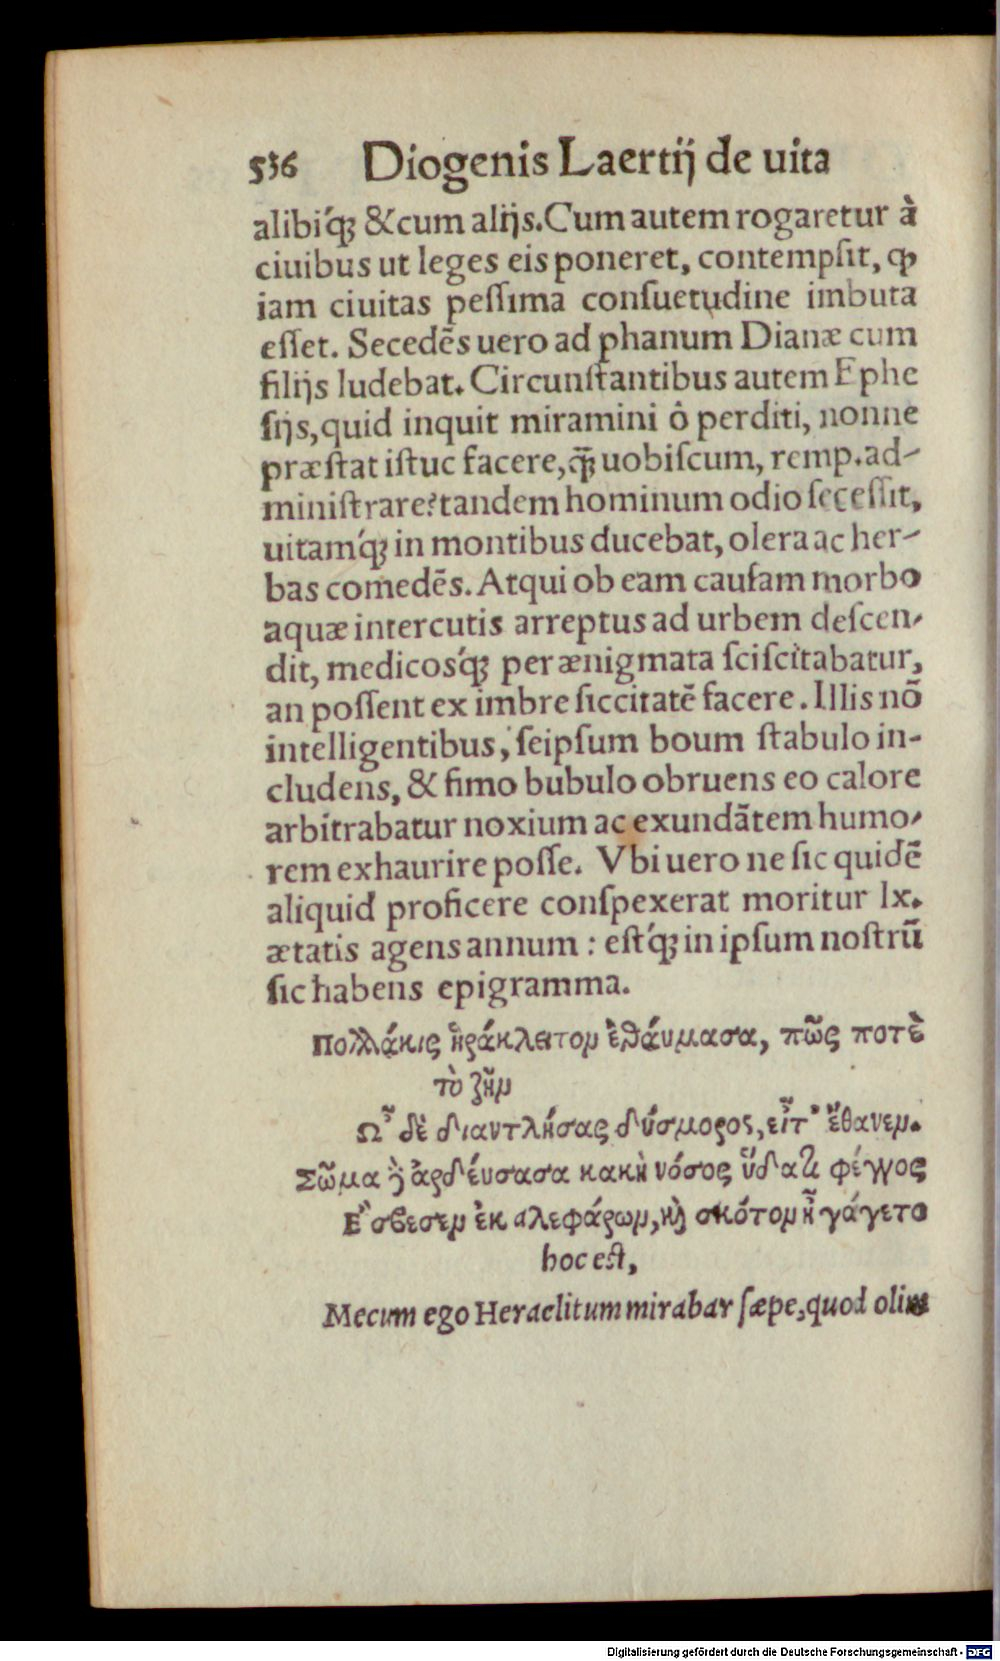 536 Diogenis Laertij de uita
alibiq́ꝫ &cum alijs. Cum autem rogaretur à
ciuibus ut leges eis poneret, contempſit, ꝙ
iam ciuitas peſſima conſuetudine imbuta
eſſet. Secedēs uero ad phanum Dianæ cum
filijs ludebat. Circunſtantibus autem Ephe
ſijs, quid inquit miramini ô perditi, nonne
præſtat iſtuc facere, q̃ꝫ uobiſcum, remp. ad-
miniſtrare? tandem hominum odio ſeceſſit,
uitamq́ꝫ in montibus ducebat, olera ac her-
bas comedēs. Atqui ob eam cauſam morbo
aquæ intercutis arreptus ad urbem deſcen-
dit, medicosq́ꝫ per ænigmata ſciſcitabatur,
an poſſent ex imbre ſiccitatē facere. Illis nō
intelligentibus, ſeipſum boum ſtabulo in-
cludens, & fimo bubulo obruens eo calore
arbitrabatur noxium ac exundātem humo-
rem exhaurire poſſe. Vbi uero ne ſic quidē
aliquid proficere conſpexerat moritur lx.
ætatis agens annum : eſtq́ꝫ in ipſum noſtrū
ſic habens epigramma.
Πολλάκις ἡράκλειτον ἐθάυμασα, πῶς ποτὲ
τὸ ζῆν
Ὦ δὲ διαντλήσας δύσμορος, εἶτ' ἔθανεν.
Σῶμα ὃ ἀρδέυσασα κακὴ νόσος ὕδατι φέγγος
Ἔσβεσεν ἐκ αλεφάρων, καὶ σκότον ἦ γάγετο
hoc eſt,
Mecum ego Heraclitum mirabar ſæpe, quod olim
Digitalisierung gefördert durch die Deutsche Forschungsgemeinschaft - DFG